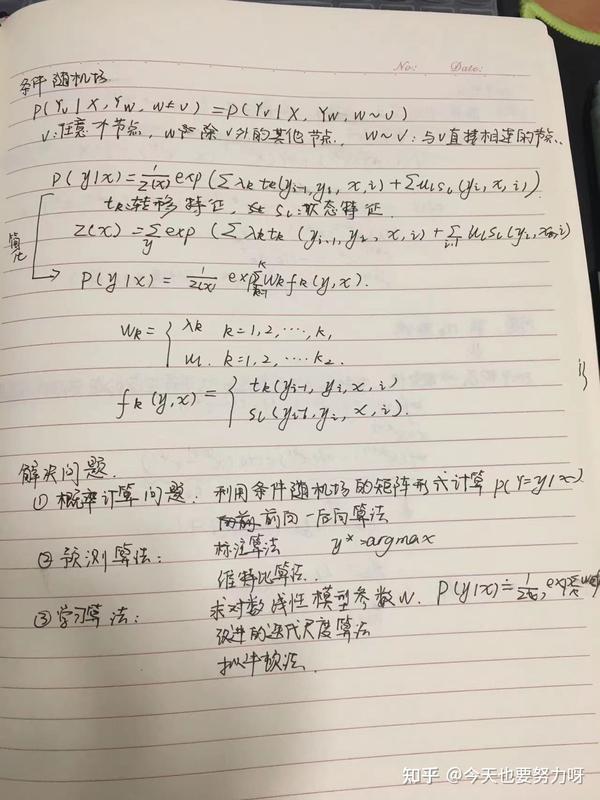 No: Date:
条件随机场
P(Yv|X, Yw, w≠v) = P(Yv|X, Yw, w~v)
v:任意个节点, w 除v外的其他节点, w~v:与v直接相连的节点.
P(y|x)=1/Z(x) exp(∑λk tk(yi-1, yi, x, i)+∑ul sl(yi, x, i)).
tk:转移特征, sl:状态特征.
Z(x)=∑y exp(∑λk tk(yi-1, yi, x, i)+∑ul sl(yi, x, i)
简化
P(y|x)=1/Z(x) exp∑wk fk(y, x).
wk={ λk k=1,2,…,k1
ul. k=1,2,…k2.
fk(y,x)={ tk(yi-1 yi, x, i)
sl(yi-1, yi, x, i).
解决问题.
① 概率计算问题. 利用条件随机场的矩阵形式计算 P(Y=y|x)
前向-后向算法
② 预测算法: 标注算法 y*=argmax
维特比算法.
③ 学习算法: 求对数线性模型参数w. P(y|x)=
改进的迭代尺度算法
拟牛顿法.
知乎 @今天也要努力呀